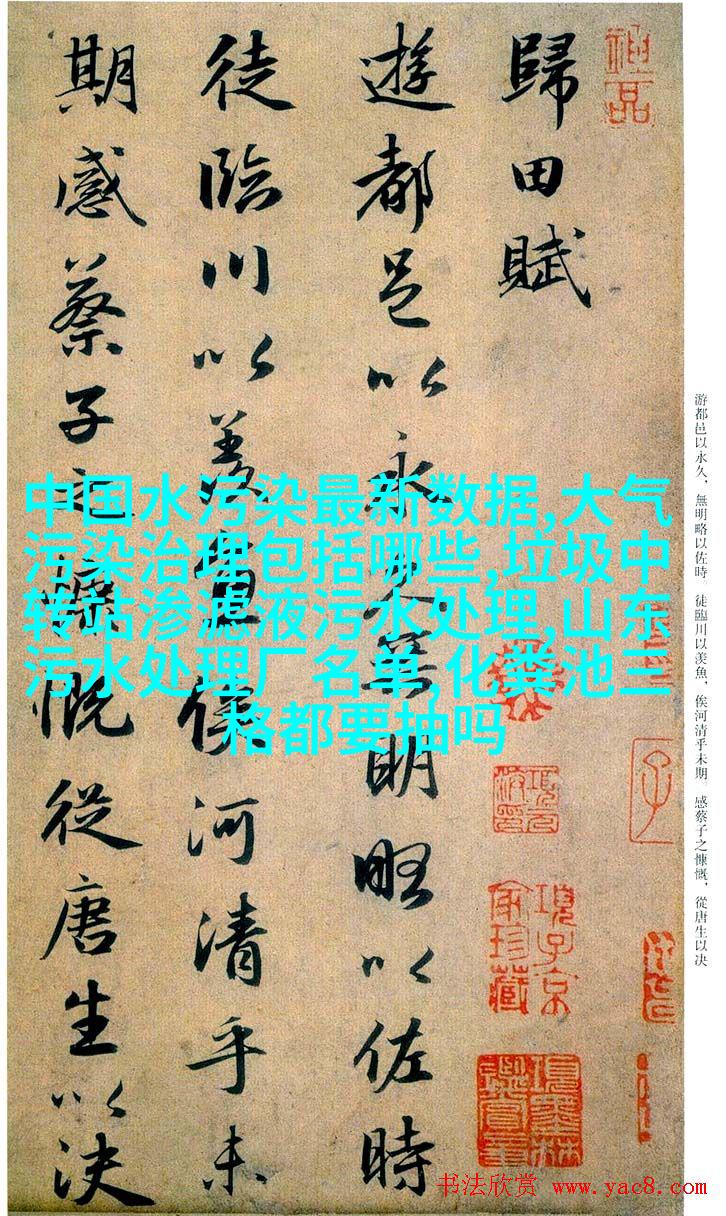 歸田賦
遊都邑以永久無明略以佐時
徒臨川以羨魚俟河清乎未
期感蔡子之慷慨從唐生以決
中国水污染最新数据,大气
污染治理包括哪些,垃圾中
转站渗滤液污水处理,山东
污水处理厂名单,化粪池三
格都要抽吗
游都邑以永久，無明略以佐時　徒臨川以羨魚，俟河清乎未期　感蔡子之慷慨，從唐生以决
神品
項子京家珍藏
书法欣赏 www.yac8.com